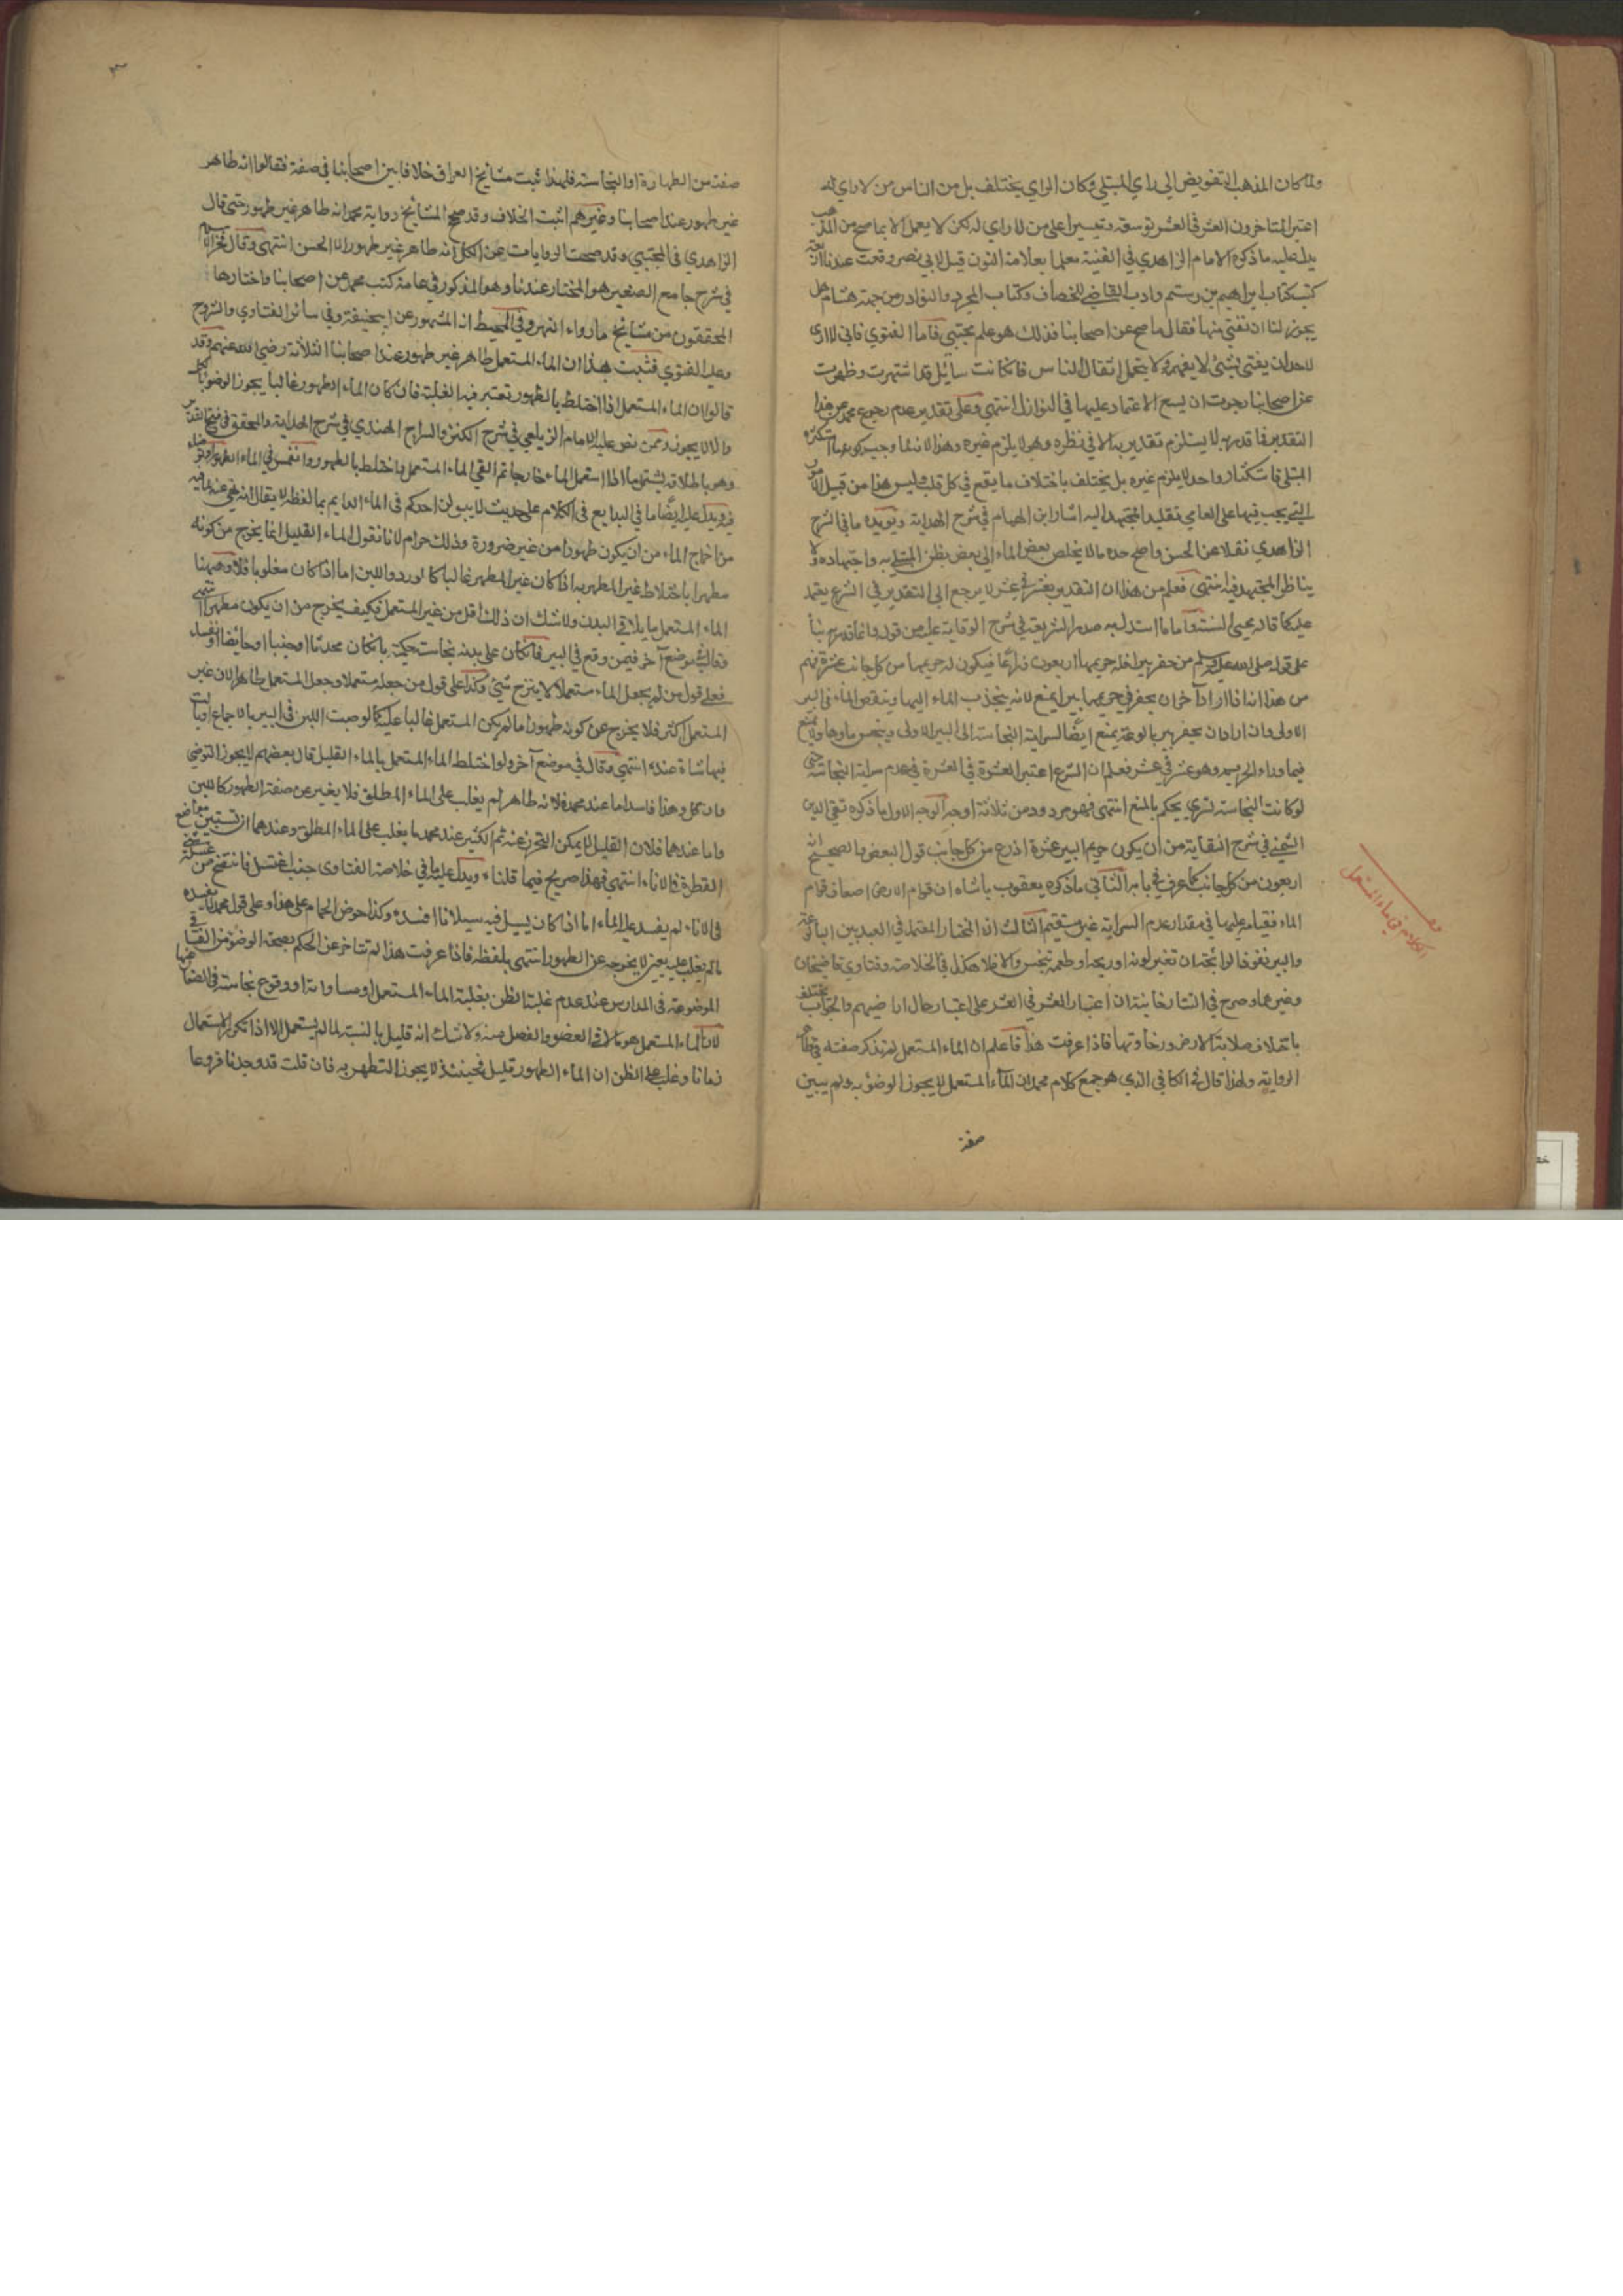 ولما كان المذهب التفويض الى راي المبتلى وكان الراي يختلف بل من الناس من لا راي له
اعتبر المتاخرون العشر في العشر توسعة وتيسيرا على من لا راي له لكن لا يعمل الا بما صح من المذهب
يدل عليه ما ذكره الامام الزاهدي في القنية معلما بعلامة النون قيل لابي نصر وقعت عندنا اربعة
كتب كتاب ابراهيم بن رستم وادب القاضي للخصاف وكتاب المجرد والنوادر من جهة هشام هل
يجوز لنا ان نفتي منها فقال ما صح عن اصحابنا فذلك هو علم مجتبى فاما الفتوى فاني لا ارى
لاحد ان يفتي بشيء لا يفهمه ولا يتحمل اثقال الناس فان كانت مسائل قد اشتهرت وظهرت
عن اصحابنا رجوت ان يسع الاعتماد عليها في النوازل انتهى وعلى تقدير عدم رجوع محمد عن هذا
التقدير فما قدر به لا يستلزم تقدير به الا في نظره وهو لا يلزم غيره وهذا لانه لما وجب كونه ما استكثره
المبتلى فاستكثار واحد لا يلزم غيره بل يختلف باختلاف ما يقع في كل قلب وليس هذا من قبيل الامور
التي يجب فيها على العامي تقليد المجتهد اليه اشار ابن الهمام في شرح الهداية ويؤيده ما في شرح
الزاهدي نقلا عن الحسن واصح حده ما لا يخلص بعض الماء الى بعض بظن المبتلى به واجتهاده ولا
يناظر المجتهد فيه انتهى فعلم من هذا ان التقدير بعشر في عشر لا يرجع الى التقدير في الشرع يعتمد
عليه كما قاله محيي السنة واما ما استدل به صدر الشريعة في شرح الوقاية عليه من قوله وانما قدر به بنأ
على قوله صلى الله عليه وسلم من حفر بيرا فله حريمها اربعون ذراعا فيكون له حريمها من كل جانب عشرة ففهم
من هذا انه اذا اراد آخر ان يحفر في حريمها بيرا يمنع لانه ينجذب الماء اليها وينقص الماء في البير
الاولى وان اراد ان يحفر بير بالوعة يمنع ايضا لسراية النجاسة الى البير الاولى وينجس ماوها ولا يمنع
فيما وراء الحريم وهو عشر في عشر فعلم ان الشرع اعتبر العشرة في العشرة في عدم سراية النجاسة حتى
لو كانت النجاسة تسري يحكم بالمنع انتهى فهو مردود من ثلاثة اوجه الوجه الاول ما ذكره تقي الدين
الشمني في شرح النقاية من ان يكون حريم البير عشرة اذرع من كل جانب قول البعض والصحيح انه
اربعون من كل جانب كما عرف في بابه الثاني ما ذكره يعقوب باشاه ان قوام الارض اضعاف قوام
الماء فقياسه عليها في مقدار عدم السراية غير مستقيم الثالث ان المختار المعتمد في البعد بين البالوعة
والبير نفوذ الرائحة ان تغير لونه او ريحه او طعمه تنجس والا فلا هكذا في الخلاصة وفتاوى قاضيخان
وغيرهما وصرح في التتارخانية ان اعتبار العشر في العشر على اعتبار حال اراضيهم والجواب يختلف
باختلاف صلابة الارض ورخاوتها فاذا عرفت هذا فاعلم ان الماء المستعمل لم تذكر صفته في ظاهر
الرواية ولهذا قال في الكافي الذي هو جمع كلام محمد ان الماء المستعمل لا يجوز الوضوء به ولم يبين
صفته
الكلام في الماء المستعمل
صفته من الطهارة او النجاسة فلهذا ثبت مشايخ العراق خلافا بين اصحابنا في صفته فقالوا انه طاهر
غير طهور عند اصحابنا وغيرهم اثبت الخلاف وقد صحح المشايخ رواية محمد انه طاهر غير طهور حتى قال
الزاهدي في المجتبى وقد صحت الروايات عن الكل انه طاهر غير طهور الا الحسن انتهى وقال فخر الاسلام
في شرح جامع الصغير هو المختار عندنا وهو المذكور في عامة كتب محمد عن اصحابنا واختارها
المحققون من مشايخ ما وراء النهر وفي المحيط انه المشهور عن ابي حنيفة وفي سائر الفتاوى والشروح
وعليه الفتوى فثبت بهذا ان الماء المستعمل طاهر غير طهور عند اصحابنا الثلاثة رضي الله عنهم وقد
قالوا ان الماء المستعمل اذا اختلط بالطهور تعتبر فيه الغلبة فان كان الماء الطهور غالبا يجوز الوضوء بالكل
والا لا يجوز وممن نص عليه الامام الزيلعي في شرح الكنز والسراج الهندي في شرح الهداية والمحقق في فتح القدير
وهو باطلاقه يشتمل ما اذا استعمل الماء خارجا ثم القي الماء المستعمل واختلط بالطهور او انغمس في الماء الطهور او توضأ
فيه ويدل عليه ايضا ما في البدايع في الكلام على حديث لا يبولن احدكم في الماء الدايم بما لفظه لا يقال انه نهي عنه لما فيه
من اخراج الماء من ان يكون طهورا من غير ضرورة وذلك حرام لانا نقول الماء القليل انما يخرج من كونه
مطهرا باختلاط غير المطهر به اذا كان غير المطهر غالبا كما اورد واللبن اما اذا كان مغلوبا فلا وههنا
الماء المستعمل ما يلاقي البدن ولا شك ان ذلك اقل من غير المستعمل فكيف يخرج من ان يكون مطهرا انتهى
وقال في موضع آخر فيمن وقع في البير فان كان على بدنه نجاسة حكمية بان كان محدثا او جنبا او حايضا او نفساء
فعلى قول من لم يجعل الماء مستعملا لا ينزح شيئ وكذا على قول من جعله مستعملا وجعل المستعمل طاهرا لان غير
المستعمل اكثر فلا يخرج عن كونه طهورا ما لم يكن المستعمل غالبا عليه كما لو صبت اللبن في البير بالاجماع او بالت
فيها شاة عنده انتهى وقال في موضع آخر ولو اختلط الماء المستعمل بالماء القليل قال بعضهم لا يجوز التوضي
وان قل وهذا فاسد اما عند محمد فلانه طاهر لم يغلب على الماء المطلق فلا يغيره عن صفة الطهور كاللبن
واما عندهما فلان القليل لا يمكن التحرز عنه ثم الكثير عند محمد ما يغلب على الماء المطلق وعندهما ان تستبين مواضع
القطرة في الاناء انتهى فهذا صريح فيما قلناه ويدل عليه ما في خلاصة الفتاوى جنب اغتسل فانتضح من غسله شيء
في الاناء لم يفسد عليه الماء اما اذا كان يسيل فيه سيلانا افسده وكذا حوض الحمام على هذا وعلى قول محمد لا يفسده
ما لم يغلب عليه يعني لا يخرجه عن الطهور انتهى بلفظه فاذا عرفت هذا لم تتاخر عن الحكم بصحة الوضوء من الفساقي
الموضوعة في المدارس عند عدم غلبة الظن بغلبة الماء المستعمل او مساواته او وقوع نجاسة في الصغار منها
لان الماء المستعمل هو ما لاقى العضو وانفصل عنه ولا شك انه قليل بالنسبة لما لم يستعمل الا اذا تكرر الاستعمال
زمانا وغلب على الظن ان الماء الطهور قليل فحينئذ لا يجوز التطهر به فان قلت قد وجدنا فروعا